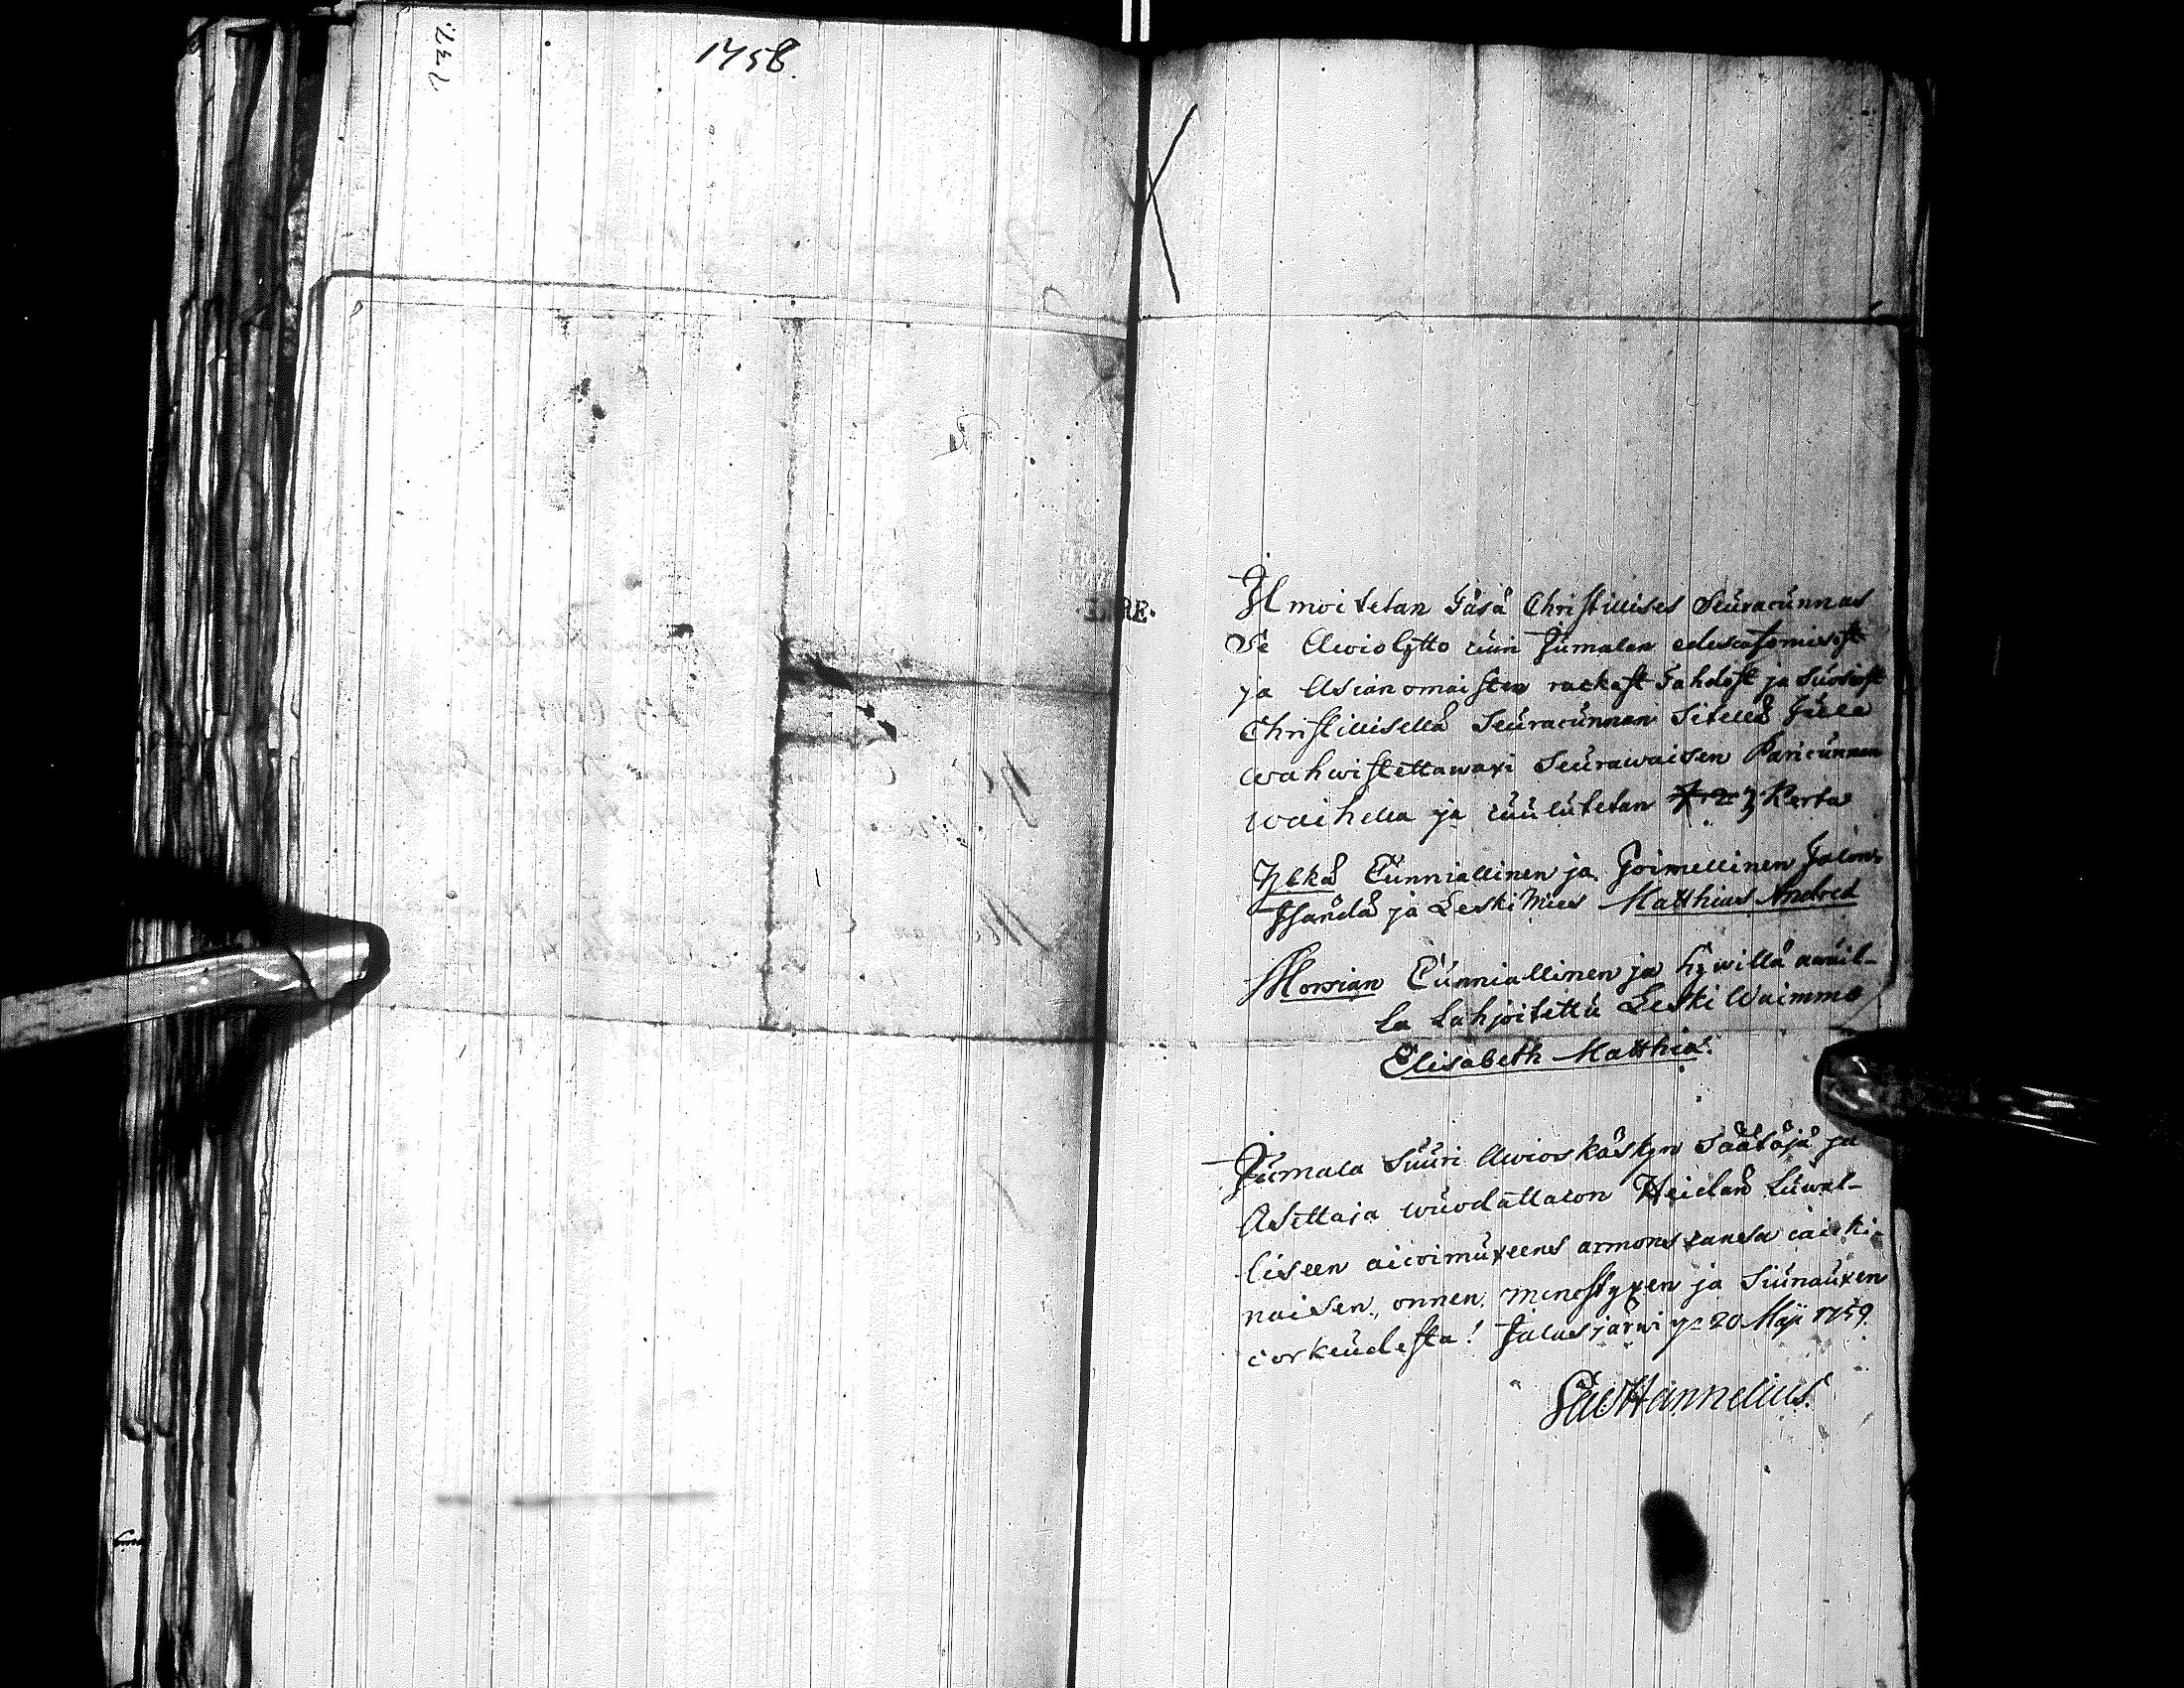 1758.
737.
Ilmoitetan Täsä Christillises Seuracunnas
Se Awiolijtto cuin Jumalan edescatsomisest
ja Asianomaisten rackast Tahdost ja Suosiost
Christillisellä Seuracunnan Siteellä Tulee
wahwistettawaxi Seurawaisen Paricunnan
waihella ja cuulutetan 3 Kerta
Yljkä Cunniallinen ja Toimellinen Talon
Isändä ja LeskiMies Matthias Andred
Morsian Cunniallinen ja hywillä awuil-
la Lahjoitettu Leski Waimmo
Elisabeth Matthiæ.
Jumala Suuri Awios käskyn Säätäjä ja
Asettaja wuodattacon Heidän Luwal-
liseen aicoimuxeens armons canssa caicki-
naisen, onnen, menestyxen ja Siunauxen
corkeudesta! Jalasjärwi ye 20 Maji 1759.
Hannelius.